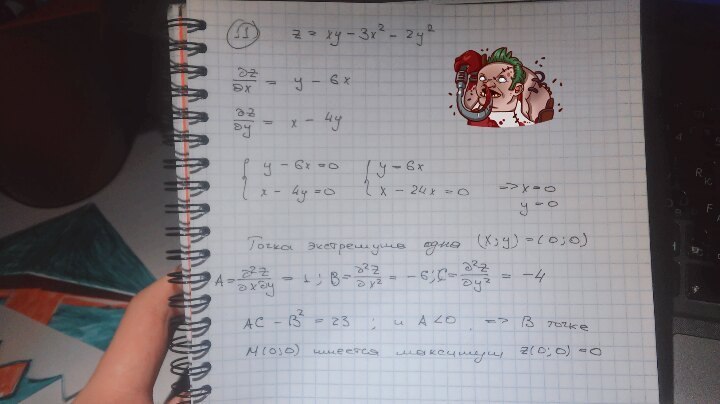 11 z = xy - 3x² - 2y²
∂z/∂x = y - 6x
∂z/∂y = x - 4y
{ y - 6x = 0 { y = 6x
{ x - 4y = 0 { x - 24x = 0 => x = 0
y = 0
Точка экстремума одна (x; y) = (0; 0)
A = ∂²z/∂x∂y = 1; B = ∂²z/∂x² = -6; C = ∂²z/∂y² = -4
AC - B² = 23 ; и A < 0 => В точке
M(0; 0) имеется максимум z(0; 0) = 0